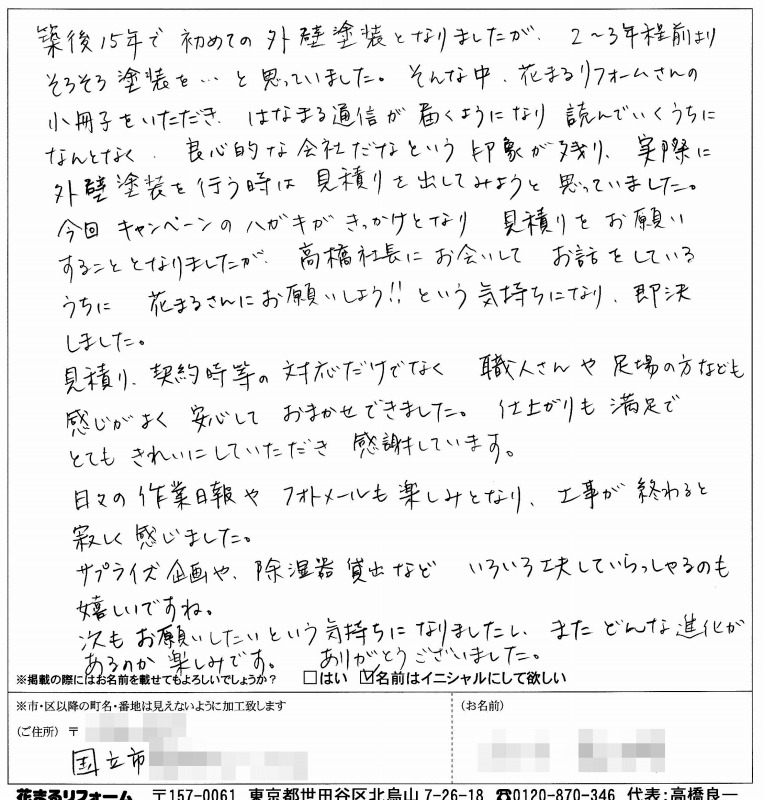 築後15年で 初めての 外壁塗装となりましたが、2~3年程前より
そろそろ塗装を…と思っていました。そんな中、花まるリフォームさんの
小冊子をいただき、はなまる通信が届くようになり 読んでいくうちに
なんとなく、良心的な会社だなという印象が残り、実際に
外壁塗装を行う時は見積りを出してみようと思っていました。
今回キャンペーンのハガキがきっかけとなり 見積りをお願い
することとなりましたが、高橋社長にお会いして お話をしている
うちに 花まるさんにお願いしよう!!という気持ちになり、即決
しました。
見積り、契約時等の対応だけでなく 職人さんや足場の方なども
感じがよく 安心して おまかせできました。仕上がりも満足で
とてもきれいにしていただき 感謝しています。
日々の作業日報や フォトメールも楽しみとなり、工事が終わると
寂しく感じました。
サプライズ企画や、除湿器貸出など いろいろ工夫していらっしゃるのも
嬉しいですね。
次もお願いしたいという気持ちになりましたし、またどんな進化が
あるのか楽しみです。 ありがとうございました。
※掲載の際にはお名前を載せてもよろしいでしょうか? □はい ☑名前はイニシャルにして欲しい
※市・区以降の町名・番地は見えないように加工致します
(お名前)
(ご住所) 〒
国立市
花まるリフォーム 〒157-0061 東京都世田谷区北烏山7-26-18 ☎0120-870-346 代表:高橋良一